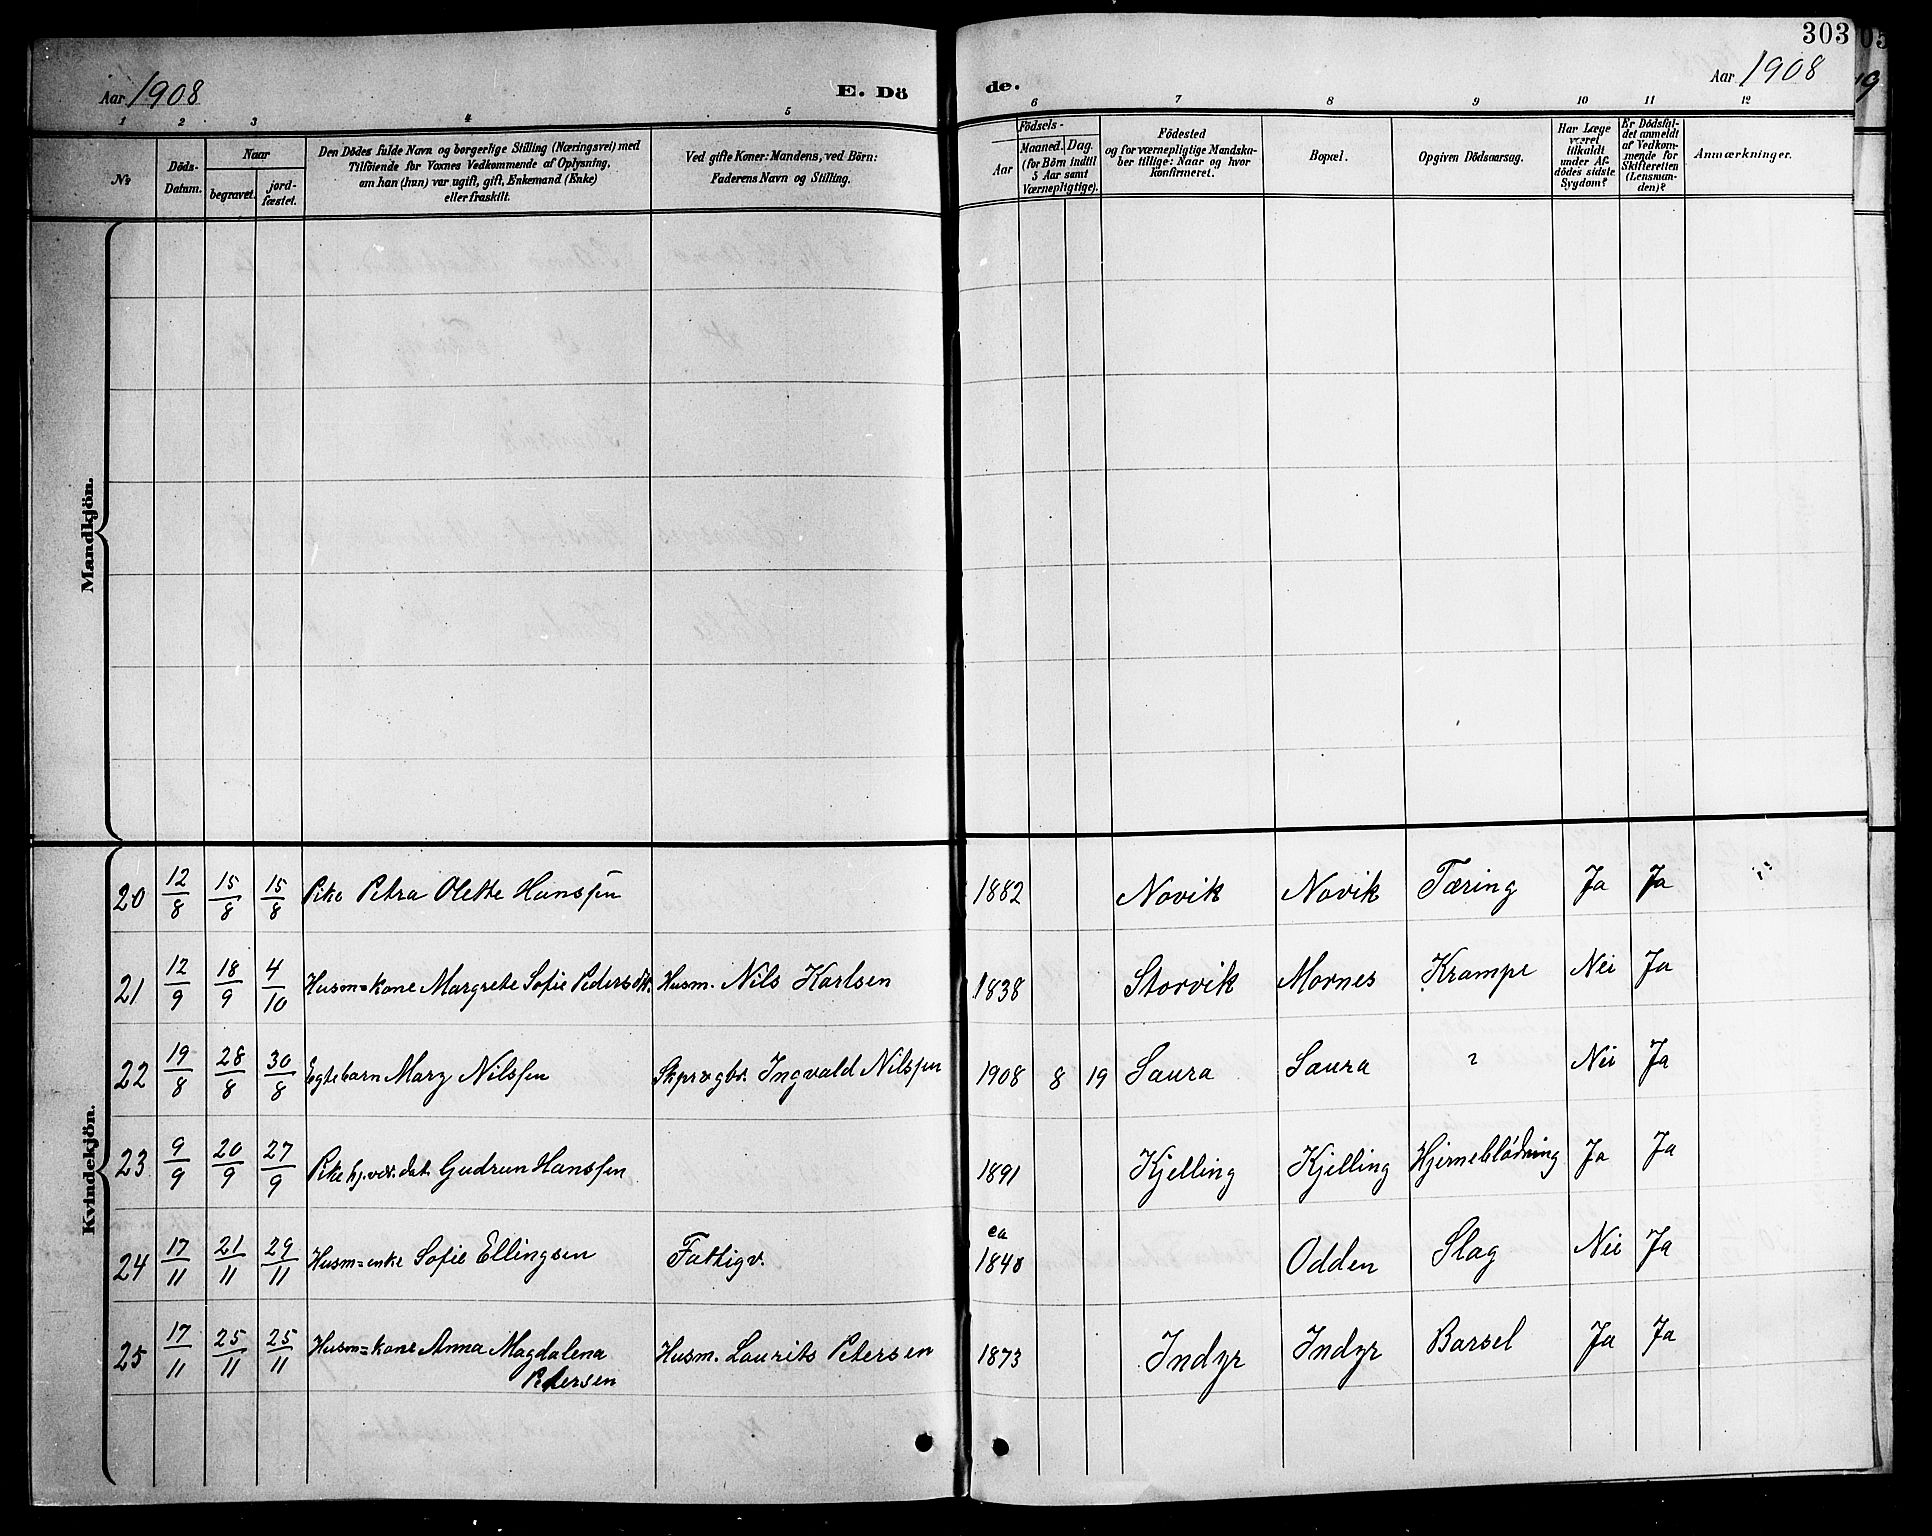 303
Aar 1908 E. Dö de. Aar 1908
1 2 3 4 5 6 7 8 9 10 11 12
№
Döds-Datum.
Naar
begravet.
jord-fæstet.
Den Dödes fulde Navn og borgerlige Stilling (Næringsvei) med
Tilföiende for Voxnes Vedkommende af Oplysning,
om han (hun) var ugift, gift, Enkemand (Enke)
eller fraskilt.
Ved gifte Koner: Mandens, ved Börn:
Faderens Navn og Stilling.
Födsels-
Aar
Maaned. Dag.
(for Börn indtil
5 Aar samt
Værnepligtige).
Födested
og for værnepligtige Mandska-
ber tillige: Naar og hvor
konfirmeret.
Bopæl.
Opgiven Dödsaarsag.
Har Læge
været
tilkaldt
under Af-
dödes sidste
Sygdom?
Er Dödsfal-
det anmeldt
af Vedkom-
mende for
Skifteretten
(Lensman-
den)?
Anmærkninger.
Mandkjön.
Kvindekjön.
20 12/8 15/8 15/8 Pike Petra Olette Hanssen 1882 Novik Novik Tæring Ja Ja
21 12/9 18/9 4/10 Husm=kone Margrete Sofie Pedersdtr. Husm. Nils Karlsen 1838 Storvik Mornes Krampe Nei Ja
22 19/8 28/8 30/8 Egtebarn Mary Nilssen Ingvald Nilssen 1908 8 19 Saura Saura ? Nei Ja
23 9/9 20/9 27/9 Pike hj.vær. dat. Gudrun Hanssen 1891 Kjelling Kjelling Hjerneblödning Ja Ja
24 17/11 21/11 29/11 Husm=enke Sofie Ellingsen Fattigv. ca 1840 Odden Slag Nei Ja
25 17/11 25/11 25/11 Husm=kone Anna Magdalena Husm. Laurits Petersen 1873 Indyr Indyr Barsel Ja Ja
Petersen